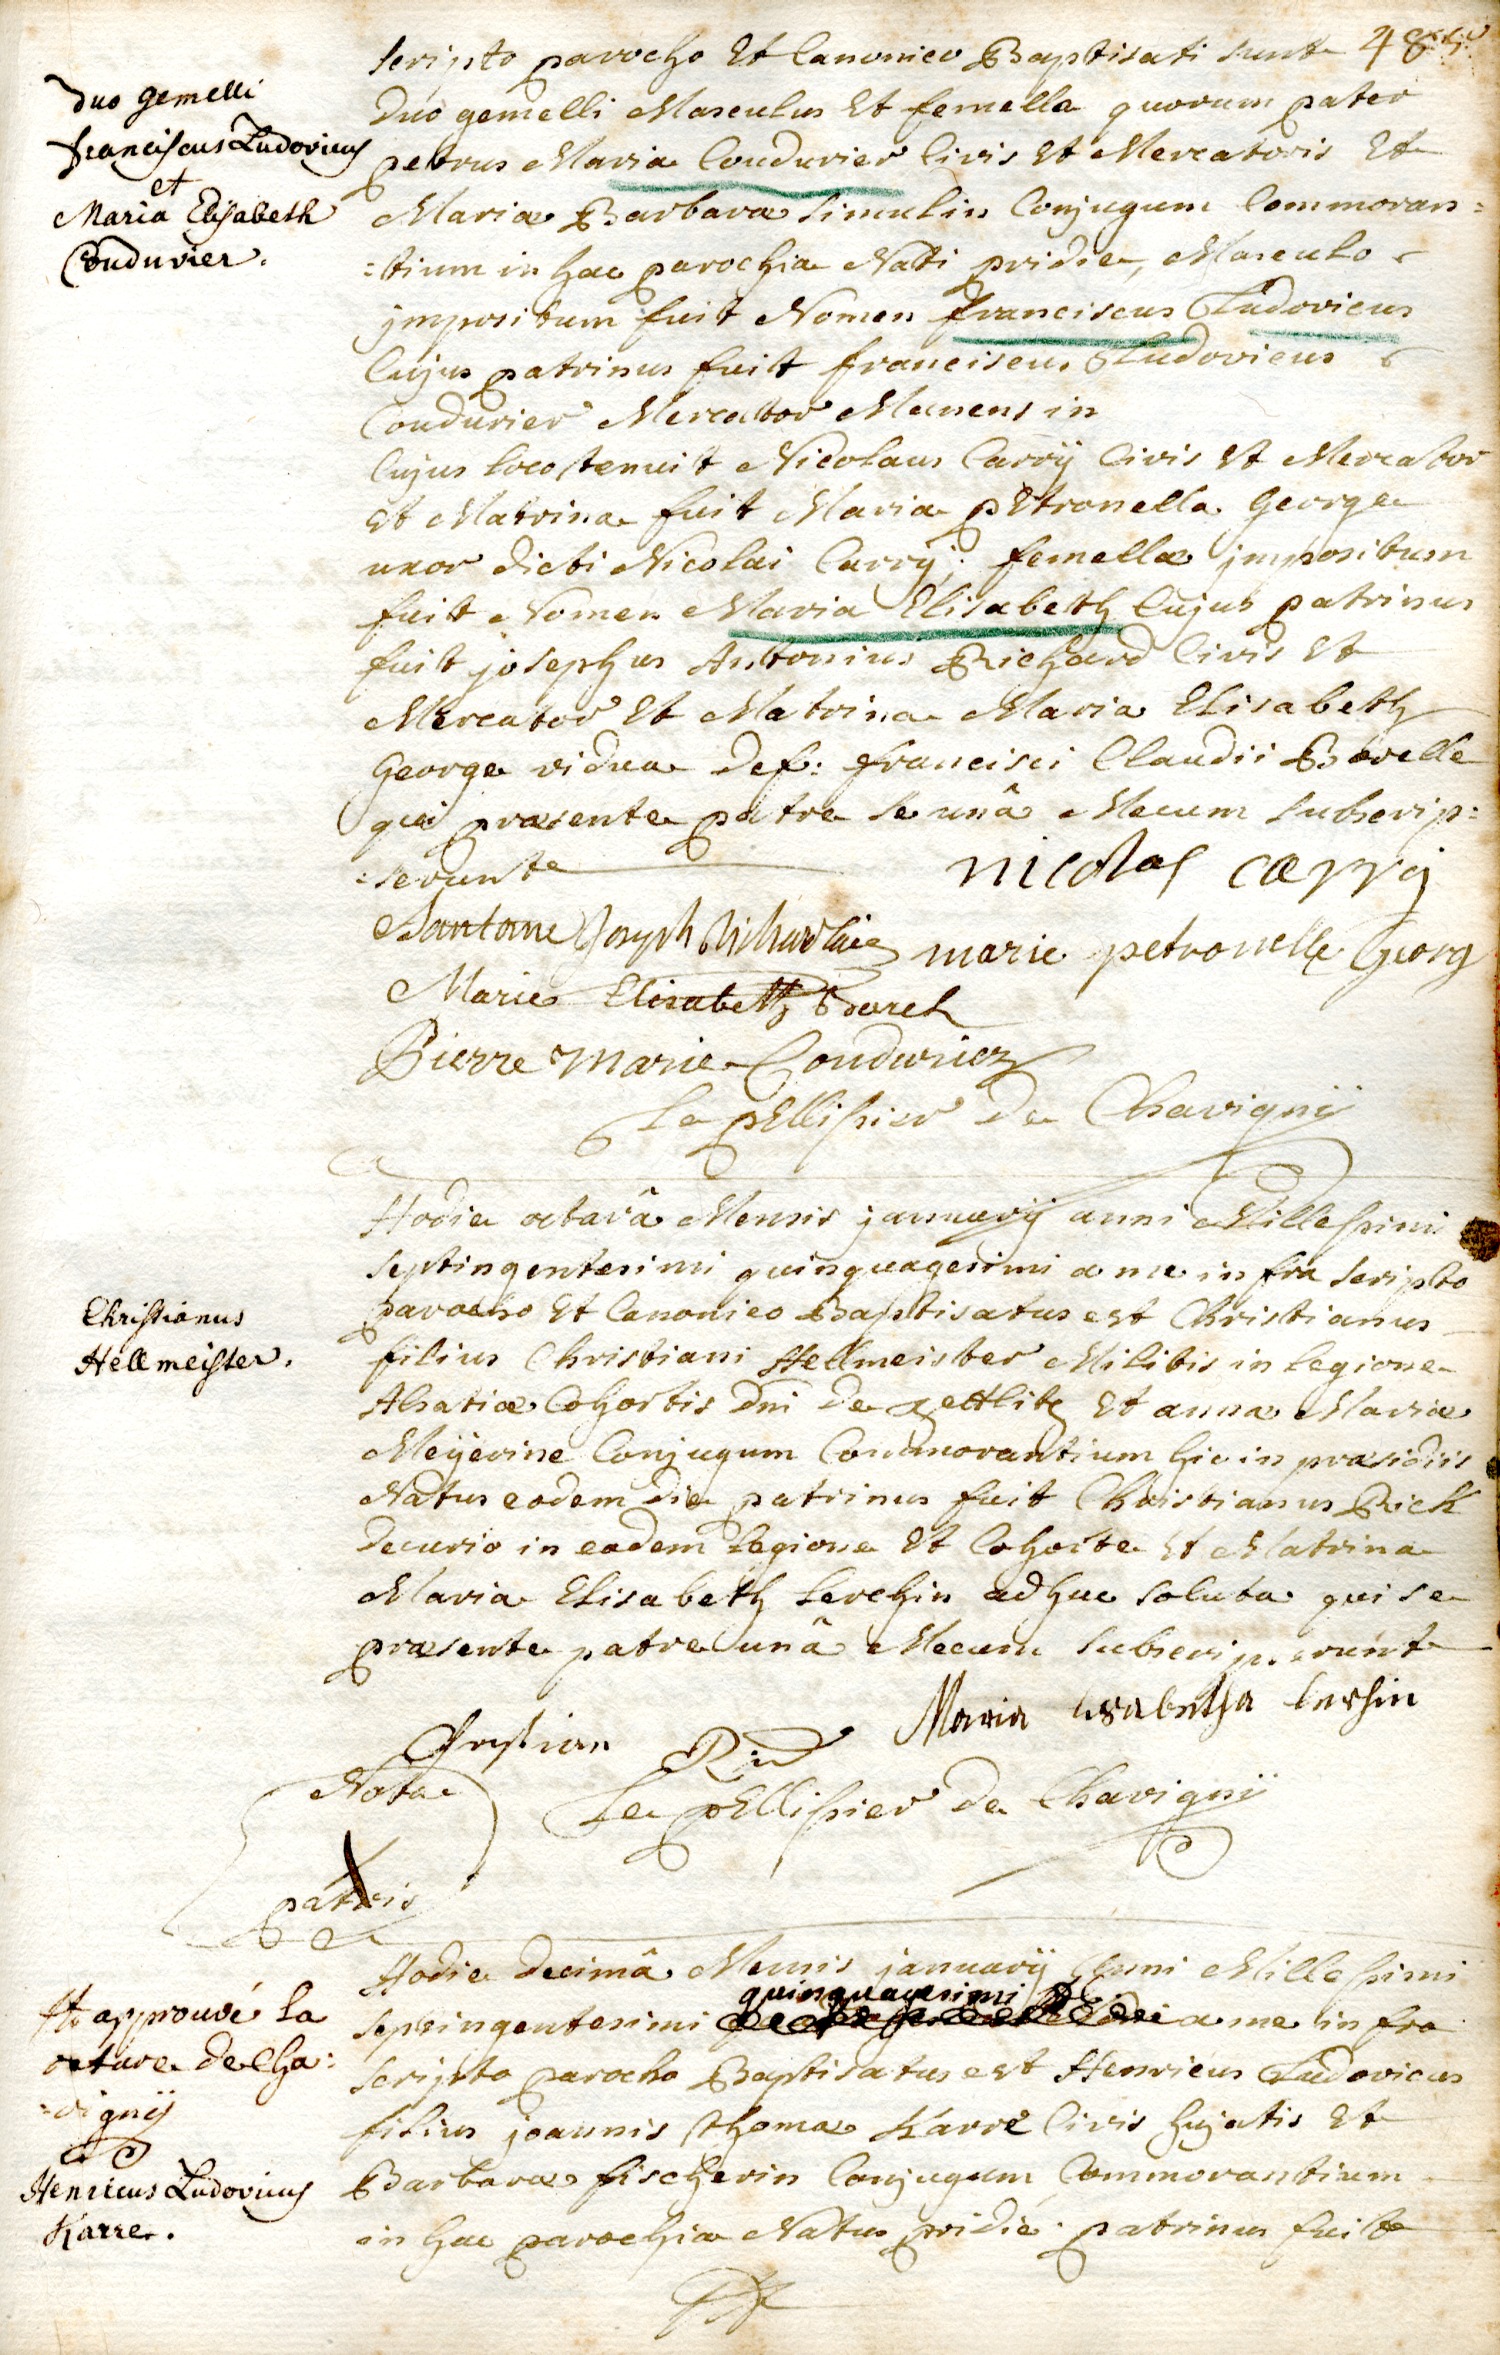 scripto parocho Et Canonico Baptisati sunt 48
Duo gemelli Masculus Et femella quorum pater
petrus Maria Coudurier Civis Et Mercatoris Et
Mariæ Barbaræ Simulin Conjugum Commoran=
=tium in hac parochia Nati pridie, Masculo
jmpositum fuit Nomen franciscus Ludovicus
Cujus patrinus fuit franciscus Ludovicus
Coudurier Mercator Manens in
Cujus loco tenuit Nicolaus Carrÿ Civis Et Mercator
Et Matrina fuit Maria pEtronella George
uxor dicti Nicolai Carrÿ. femellæ jmpositum
fuit Nomen Maria Elisabeth Cujus patrinus
fuit josephus Antonius Richard Civis Et
Mercator Et Matrina Maria Elisabeth
George vidua def: francisci Claudii Borelle
qui præsente patre se unâ Mecum subscrip=
=serunt
duo gemelli
franciscus Ludovicus
et
Maria Elisabeth
Coudurier.
nicolas carrij
antoine Joseph Richard
marie petronelle Georg
Marie Elisabeth Borel
Pierre Marie Coudurier
Le pEllissier De Chavignÿ
Hodie octavâ Mensis januarÿ anni Millessimi
septingentesimi quinquagesimi a me infra scripto
parocho Et Canonico Baptisatus est Christianus
filius Christiani Hellmeister Militis in legione
Alsatiæ Cohortis Dni de zettlitz Et anna Mariæ
Meÿerine Conjugum Commorantium hic in præsidiis
Natus eodem die patrinus fuit Christianus Rick
Decurio in eadem legione Et Cohorte Et Matrina
Maria Elisabeth Lerchin adhuc soluta qui se
præsente patre unâ Mecum subscripserunt
Christianus
Hellmeister.
Maria Elisabetha Lerchin
Christian
Nota
patris
Le pEllissier De Chavignÿ
Hodie Decimâ Mensis januarÿ Anni Millessimi
quinquagesimi
septingentesimi a me infra
scripto parocho Baptisatus est Henricus Ludovicus
filius joannis thomæ Karré Civis hujatis Et
Barbaræ fischerin Conjugum Commorantium
in hac parochia Natus pridie. patrinus fuit
approuvé la
rature de Cha=
=vignÿ
Henricus Ludovicus
Karre.